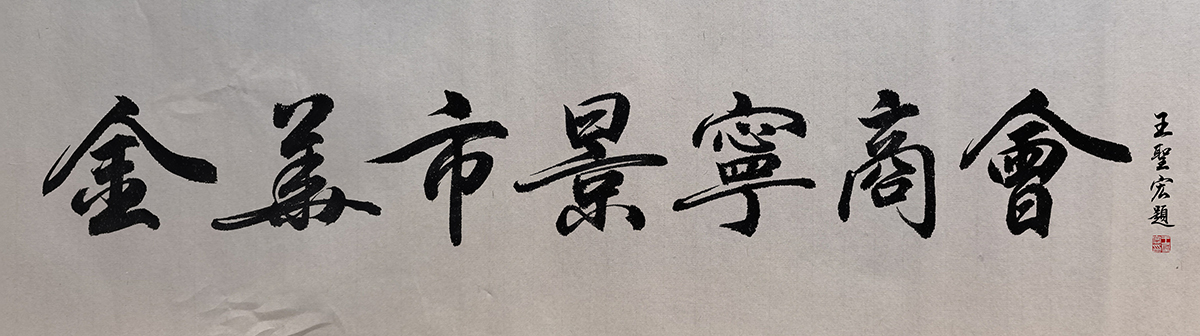 金華市景寧商會
王聖宏題